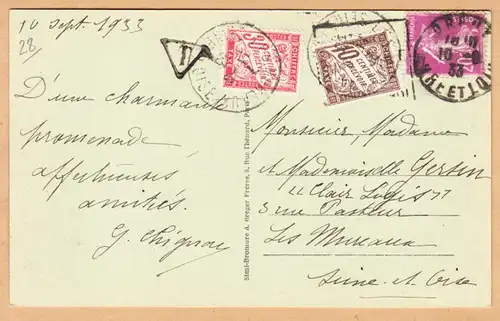 10 Sept. 1933
28
T
D'une charmante
promenade
affectueuses
amitiés.
G. Chignac
Simi-Bromure A. Breger Frères, 9, Rue Thénard, Paris
30
CENTIMES
A PERCEVOIR
10
CENTIMES
TAXE
33
Monsieur, Madame
et Mademoiselle Gertin
"Clair Logis"
3 rue Pasteur
Les Mureaux
Seine-et-Oise